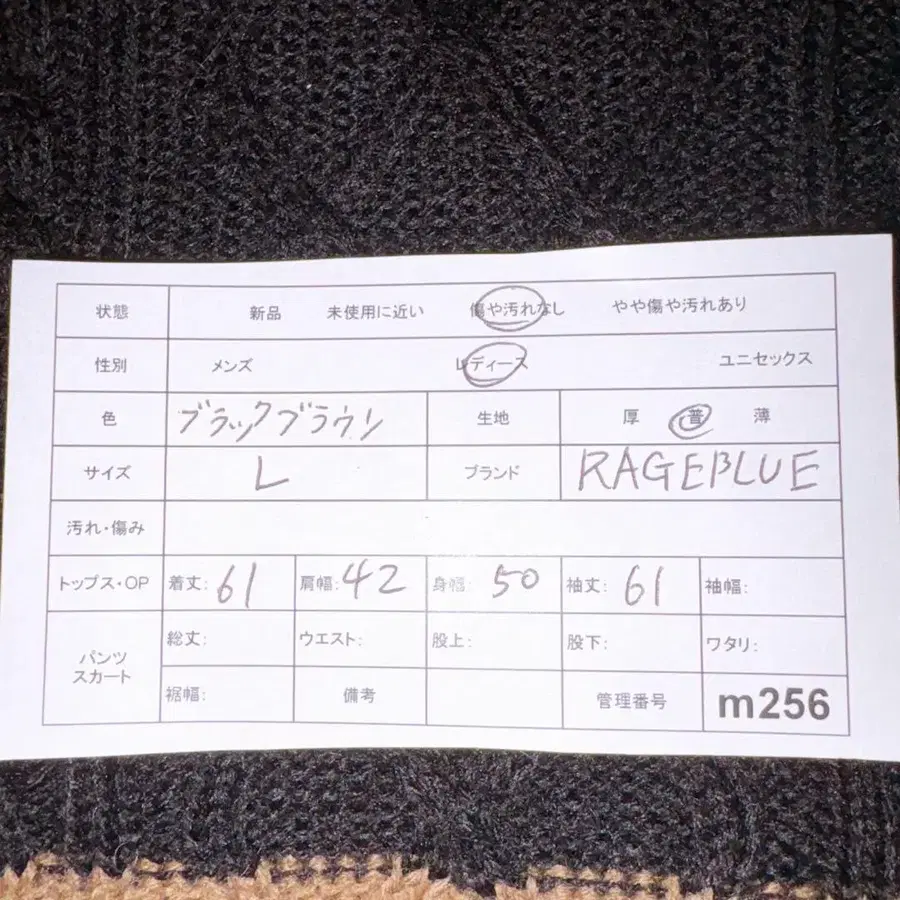 状態 新品 未使用に近い 傷や汚れなし やや傷や汚れあり
性別 メンズ レディース ユニセックス
色 ブラックブラウン 生地 厚 普 薄
サイズ L ブランド RAGEBLUE
汚れ・傷み
トップス・OP 着丈: 61 肩幅: 42 身幅: 50 袖丈: 61 袖幅:
パンツ
スカート
総丈: ウエスト: 股上: 股下: ワタリ:
裾幅: 備考 管理番号 m256